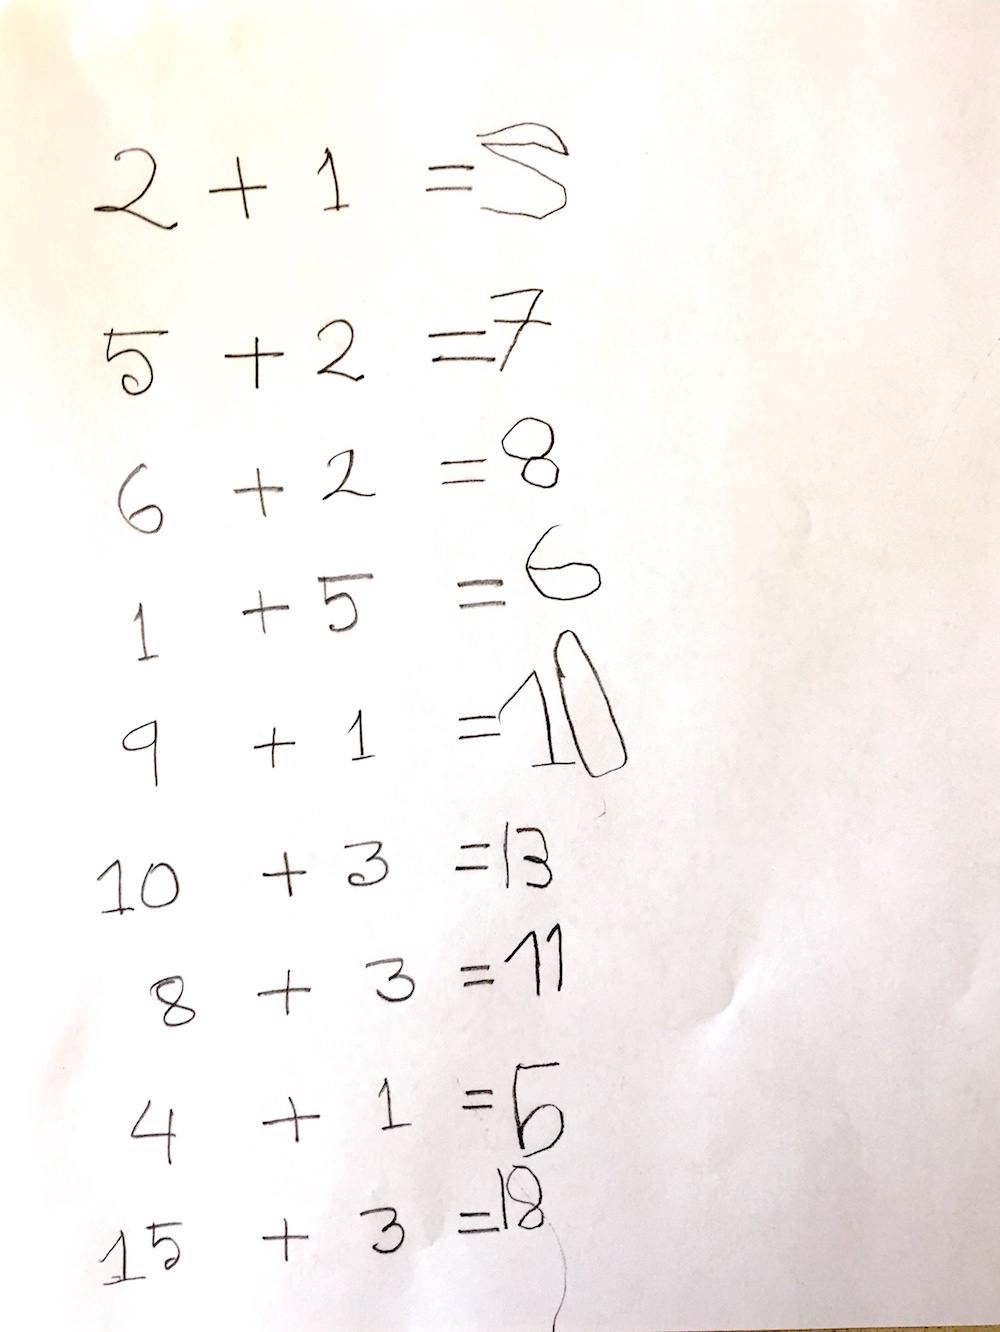 2 + 1 = 3
5 + 2 = 7
6 + 2 = 8
1 + 5 = 6
9 + 1 = 10
10 + 3 = 13
8 + 3 = 11
4 + 1 = 5
15 + 3 = 18